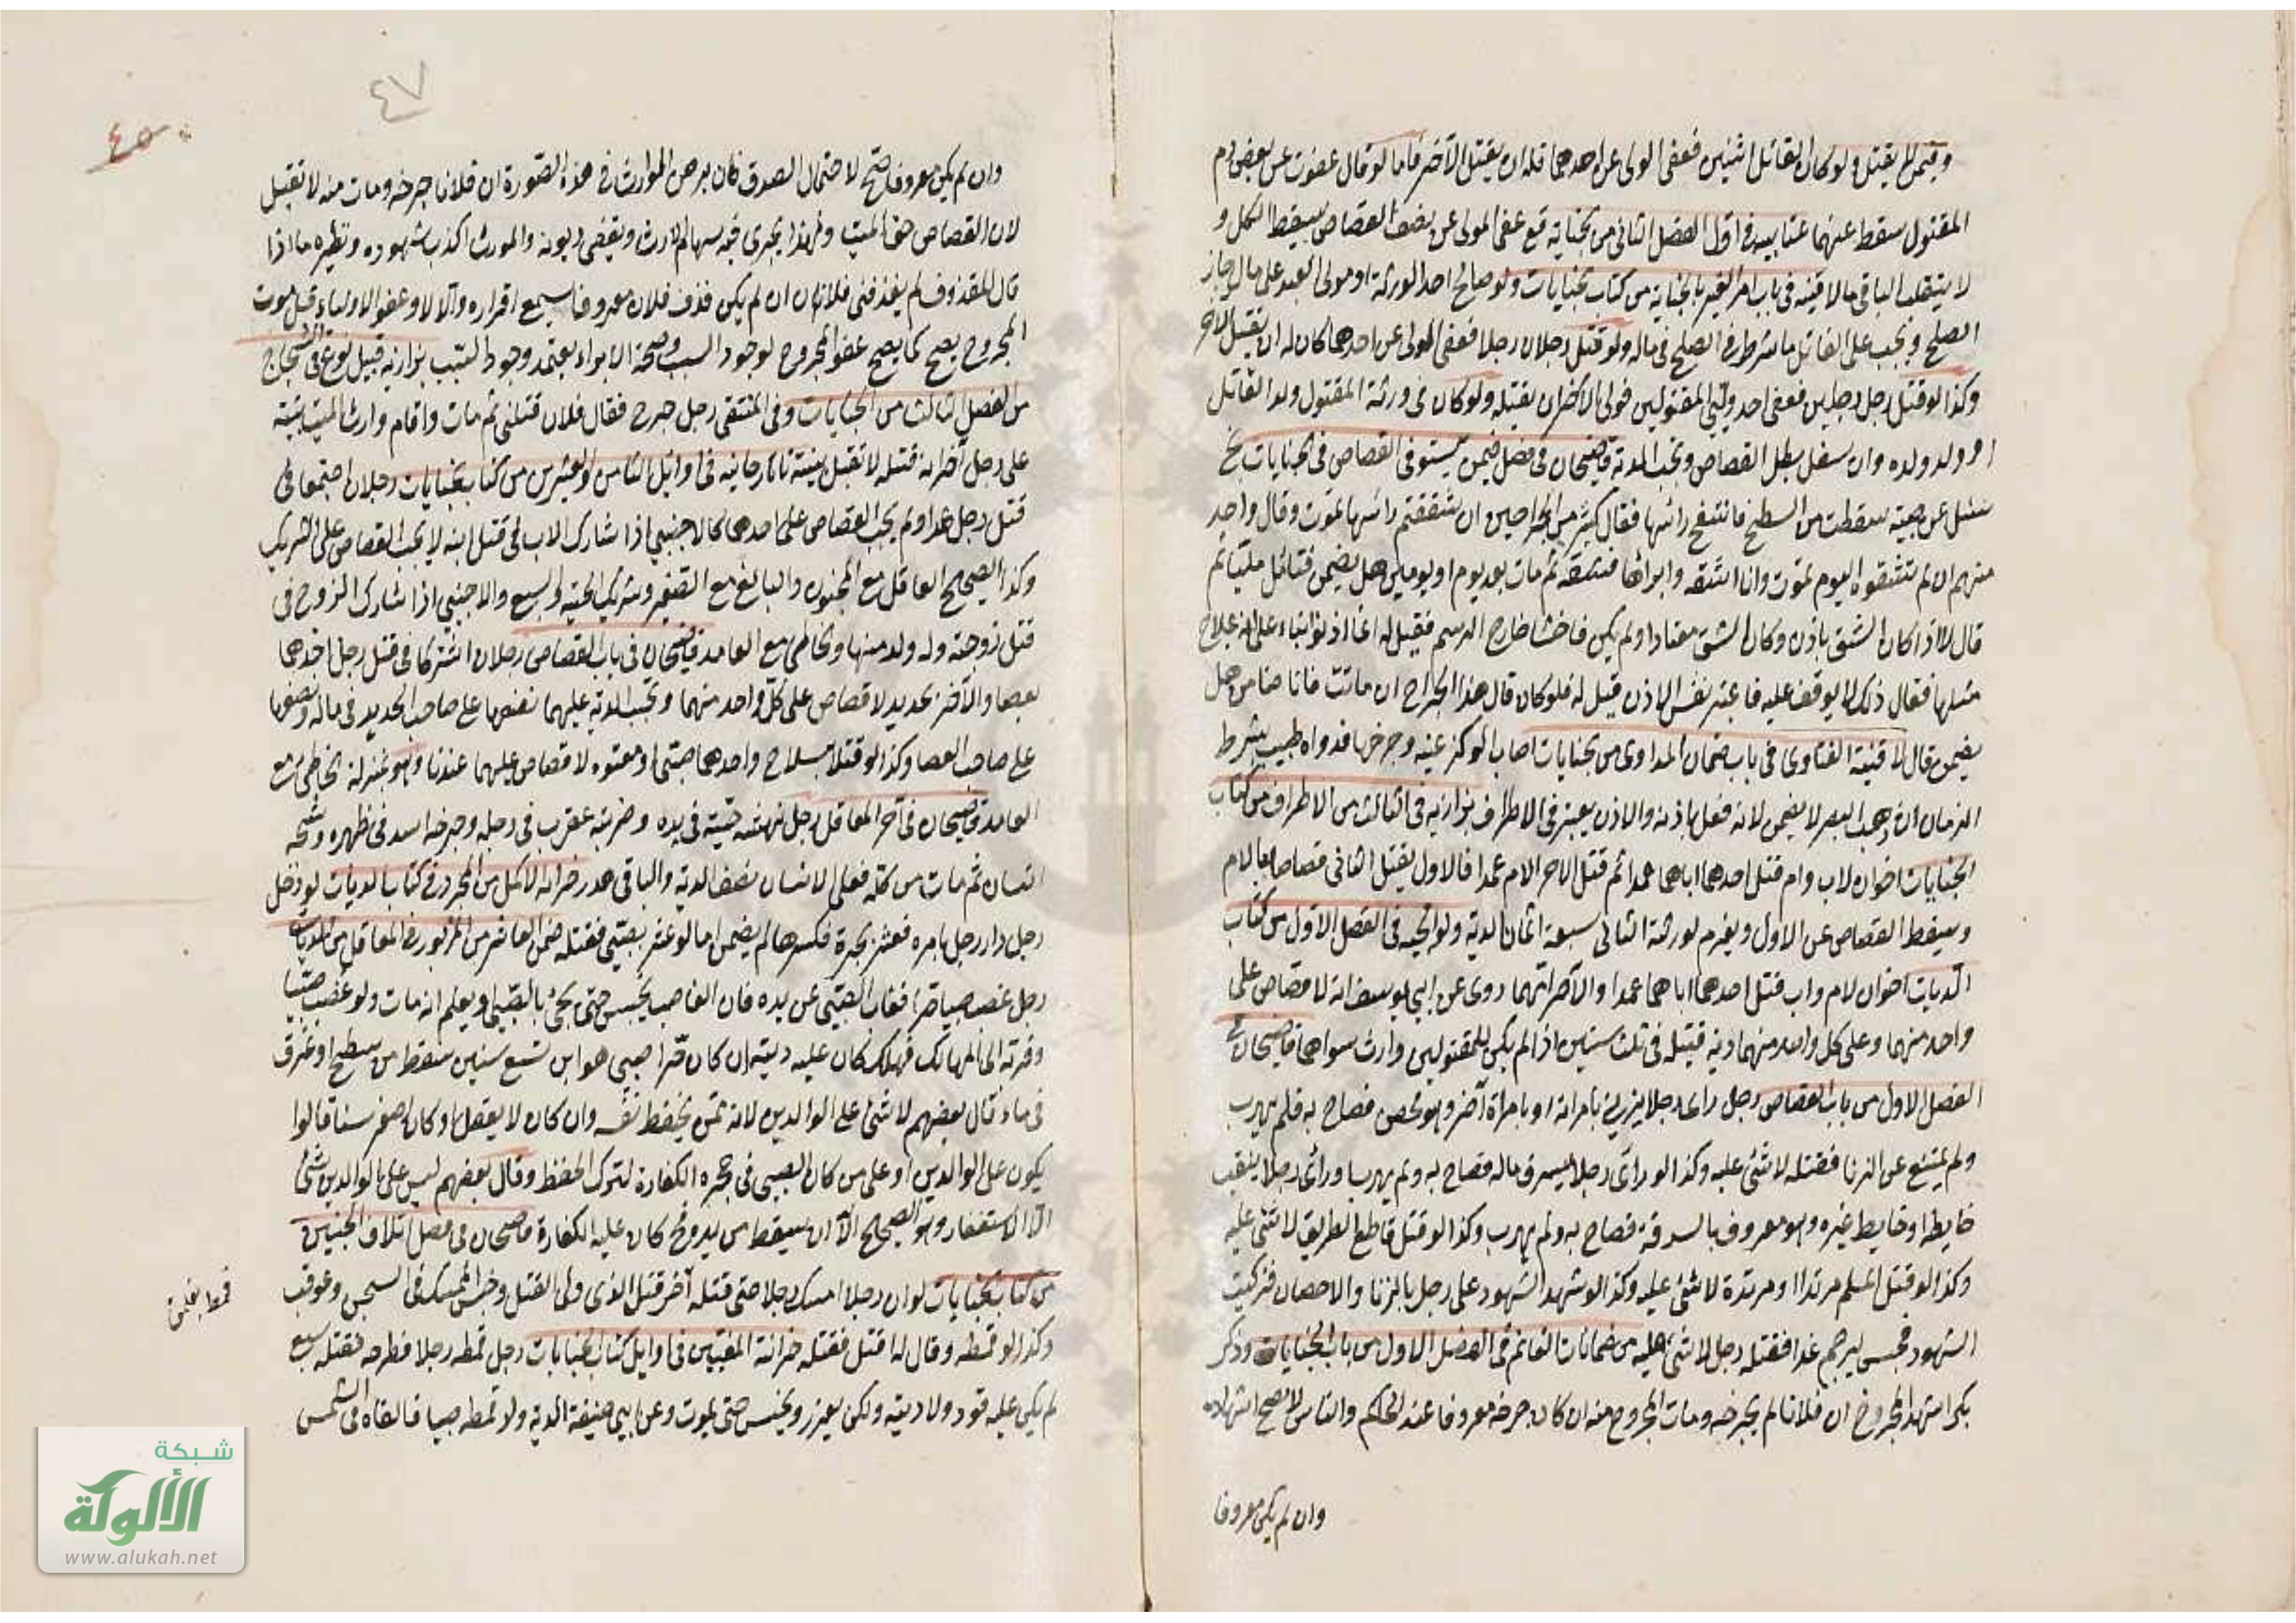 وفيمن لم يقتل ولو كان القاتل اثنين فعفى الولى عن احدهما فله ان يقتل الآخر فاما لو قال عفوت عن بعض دم
المقتول سقط عنهما عتابيه فى اول الفصل الثانى من الجناية مع عفى المولى عن نصف القصاص سقط الكل و
لا ينقلب الباقى مالا قنيه فى باب امر الغير بالجناية من كتاب الجنايات ولو صالح احد الورثة او مولى العبد على مال جاز
الصلح ويجب على القاتل ما شرط فى الصلح فى ماله ولو قتل رجلان رجلا فعفى المولى عن احدهما كان له ان يقتل الآخر
وكذا لو قتل رجل رجلين فعفى احد وليي المقتولين فولى الآخر ان يقتله ولو كان فى ورثة المقتول ولد القاتل
او ولد ولده وان سفل بطل القصاص وتجب الدية قاضيخان فى فصل فيمن يستوفى القصاص فى الجنايات نج
سئل عن صبية سقطت من السطح فانتفخ رأسها فقال كثير من الجراحين ان شققتم رأسها تموت وقال واحد
منهم ان لم تشقوه اليوم تموت وانا اشقه وابرائها فشقه ثم مات بعد يوم او يومين هل يضمن فتأمل مليا ثم
قال لا اذا كان الشق باذن وكان الشق معتادا ولم يكن فاحشا خارج الرسم فقيل له انما اذنوا بناء على انه علاج
مثلها فقال ذلك لا يوقف عليه فاعتبر نفس الاذن قيل له فلو كان قال هذا الجراح ان ماتت فانا ضامن هل
يضمن قال لا قنية الفتاوى فى باب ضمان المداوى من الجنايات اصاب الوكز عينه وجرحها فداواه طبيب بشرط
الضمان ان ذهب البصر لا يضمن لانه فعل باذنه والاذن يعتبر فى الاطراف بزازيه فى الثالث من الاطراف من كتاب
الجنايات اخوان لاب وام قتل احدهما اباهما عمدا ثم قتل الآخر الام عمدا فالاول يقتل الثانى قصاصا بالام
ويسقط القصاص عن الاول ويغرم لورثة الثانى سبعة اثمان الدية ولوالجيه فى الفصل الاول من كتاب
الديات اخوان لام واب قتل احدهما اباهما عمدا والآخر امهما روى عن ابى يوسف انه لا قصاص على
واحد منهما وعلى كل واحد منهما دية قتيله فى ثلث سنين اذا لم يكن للمقتولين وارث سواهما قاضيخان فى
الفصل الاول من باب القصاص رجل راى رجلا يزنى بامرأته او بامراة آخر وهو محصن فصاح به فلم يهرب
ولم يمتنع عن الزنا فقتله لا شئ عليه وكذا لو رأى رجلا يسرق ماله فصاح به ولم يهرب او رأى رجلا ينقب
حايطه او حايط غيره وهو معروف بالسرقة فصاح به ولم يهرب وكذا لو قتل قاطع الطريق لا شئ عليه
وكذا لو قتل المسلم مرتدا او مرتدة لا شئ عليه وكذا لو شهد الشهود على رجل بالزنا والاحصان فزكيت
الشهود فحبس ليرجم غدا فقتله رجل لا شئ عليه من ضمانات الغانم فى الفصل الاول من باب الجنايات وذكر
بكر اشهد المجروح ان فلانا لم يجرحه ومات المجروح منه ان كان جرحه معروفا عند الحاكم والناس لا يصح اشهاده
وان لم يكن معروفا
٤٧
٤٥
وان لم يكن معروفا صح لاحتمال الصدق فان برهن الوارث فى هذه الصورة ان فلانا جرحه ومات منه لا تقبل
لان القصاص حق الميت ولهذا يجرى فيه سهام الارث ويقضى ديونه والمورث اكذب شهوده ونظيره ما اذا
قال المقذوف لم يقذفنى فلان ان لم يكن قذف فلان معروفا يسمع اقراره والا لا وعفو الاولياء قبل موت
المجروح يصح كما يصح عفو المجروح لوجود السبب وصحة الابراء يعتمد وجود السبب بزازيه قبيل نوع فى الشجاج
من الفصل الثالث من الجنايات وفى المنتقى رجل جرح فقال فلان قتلنى ثم مات واقام وارث الميت بينة
على رجل آخر انه قتله لا تقبل بينته تاتارخانيه فى اوائل الثامن والعشرين من كتاب الجنايات رجلان اجتمعا فى
قتل رجل عمدا ولم يجب القصاص على احدهما كالاجنبى اذا شارك الاب فى قتل ابنه لا يجب القصاص على الشريك
وكذا الصحيح العاقل مع المجنون والبالغ مع الصغير وشريك الحية والسبع والاجنبى اذا شارك الزوج فى
قتل زوجته وله ولد منها والخاطئ مع العامد قاضيخان فى باب القصاص رجلان اشتركا فى قتل رجل احدهما
بعصا والآخر بحديد لا قصاص على كل واحد منهما وتجب الدية عليهما نصفها على صاحب الحديد فى ماله ونصفها
على صاحب العصا وكذا لو قتلا بسلاح واحدهما صبى او معتوه لا قصاص عليهما عندنا وهو بمنزلة الخاطئ مع
العامد قاضيخان فى آخر المعاقل رجل نهشته حية فى يده وضربته عقرب فى رجله وجرحه اسد فى ظهره وشجه
انسان ثم مات من كله فعلى الانسان نصف الدية والباقى هدر خزانة الاكمل من المجرد فى كتاب الديات لو دخل
رجل دار رجل بامره فعثر بجرة فكسرها لم يضمن اما لو عثر بصبى فقتله ضمن العاشر من المزبور فى المعاقل من الديات
رجل غصب صبيا حرا فغاب الصبى عن يده فان الغاصب يحبس حتى يجئ بالصبى او يعلم انه مات ولو غصب صبيا
وقربه الى المهالك فهلك كان عليه ديته ان كان حرا صبى هو ابن تسع سنين سقط من سطح او غرق
فى ماء قال بعضهم لا شئ على الوالدين لانه ممن يحفظ نفسه وان كان لا يعقل او كان اصغر سنا قالوا
يكون على الوالدين او على من كان الصبى فى حجره الكفارة لترك الحفظ وقال بعضهم ليس على الوالدين شئ
الا الاستغفار وهو الصحيح الا ان يسقط من يده فح كان عليه الكفارة قاضيخان فى فصل اتلاف الجنين
من كتاب الجنايات لو ان رجلا امسك رجلا حتى قتله آخر قتل الذى ولى القتل وحبس الممسك فى السجن وعوقب
وكذا لو قمطه وقال له اقتل فقتله خزانة المفتيين فى اوايل كتاب الجنايات رجل قمط رجلا فطرحه فقتله سبع
لم يكن عليه قود ولا ديته ولكن يعزر ويحبس حتى يموت وعن ابى حنيفة الدية ولو قمط صبيا فالقاه فى الشمس
شبكة
الألوكة
www.alukah.net